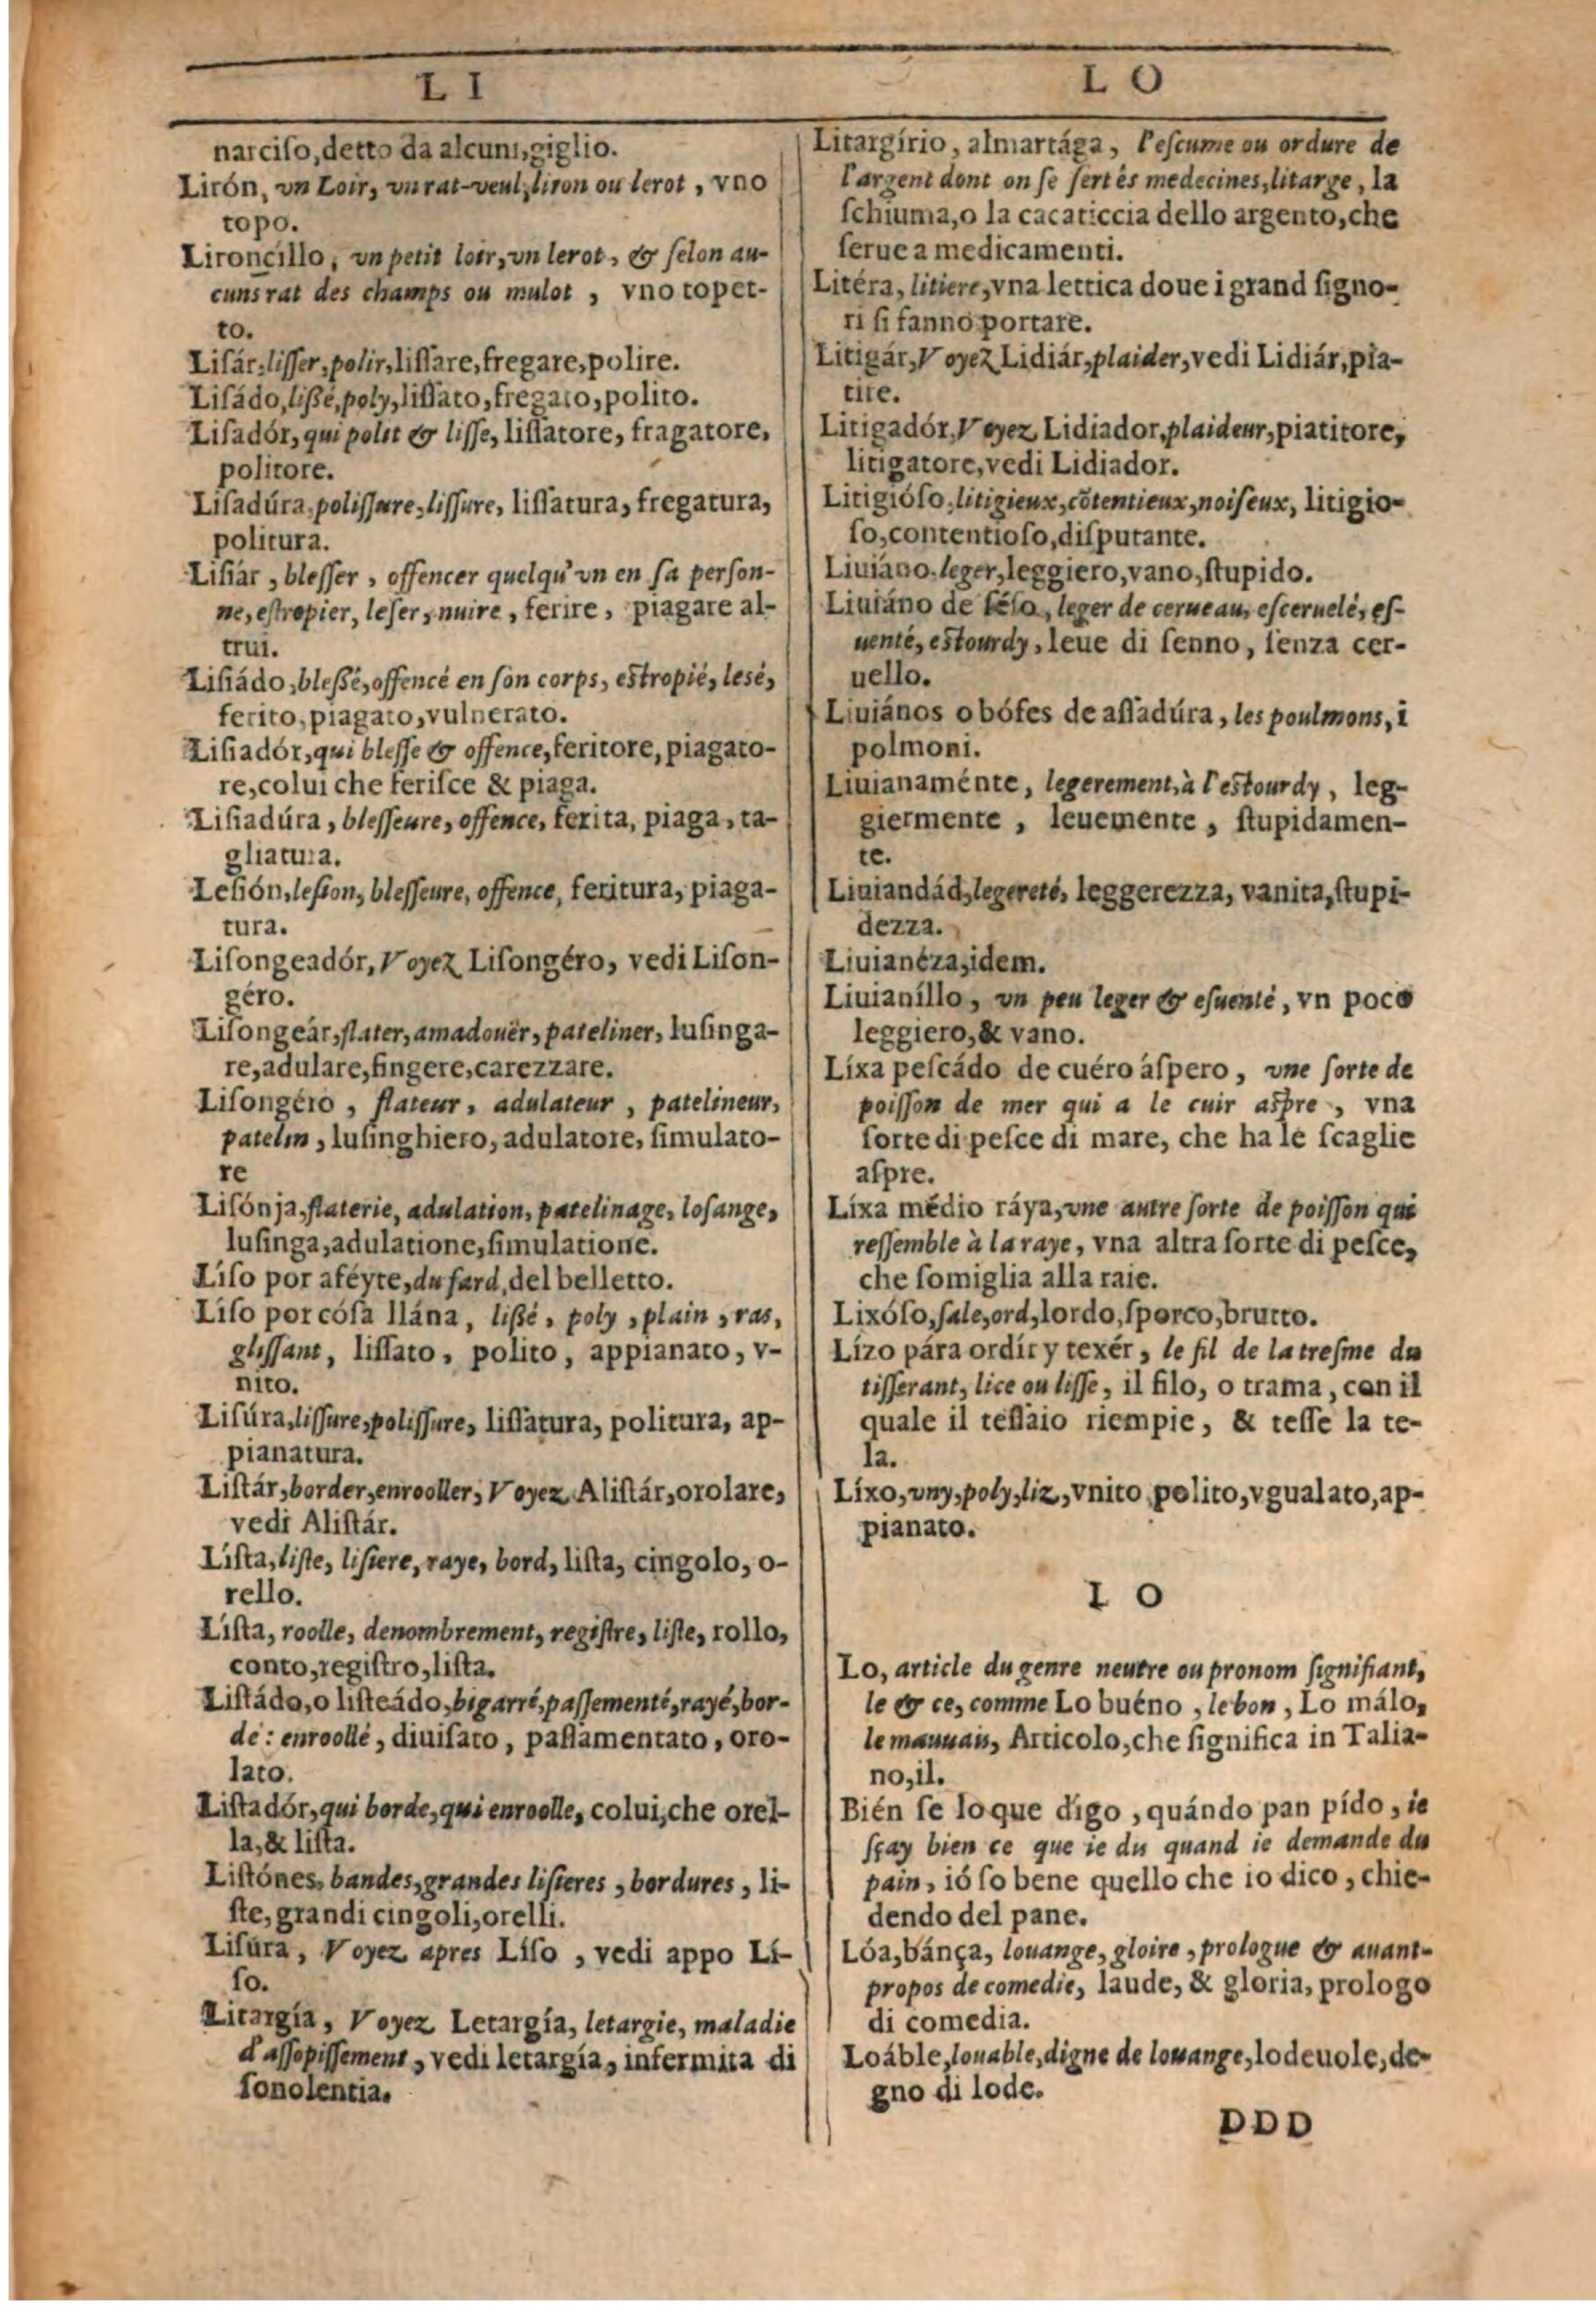 L I
narciſo,detto da alcuni,giglio.
Lirón, vn Loir, vn rat-veul, liron ou lerot, vno
topo.
Lironcillo, vn petit loir, vn lerot, & ſelon au-
cuns rat des champs ou mulot, vno topet-
to.
Liſár, liſſer, polir, liſſare, fregare, polire.
Liſádo, lißé, poly, liſſato, fregato, polito.
Liſadór, qui polit & liſſe, liſſatore, fragatore,
politore.
Liſadúra, poliſſure, liſſure, liſſatura, fregatura,
politura.
Liſiár, bleſſer, offencer quelqu'vn en ſa perſon-
ne, eſtropier, leſer, nuire, ferire, piagare al-
trui.
Liſiádo, bleßé, offencé en ſon corps, eſtropié, lesé,
ferito, piagato, vulnerato.
Liſiadór, qui bleſſe & offence, feritore, piagato-
re, colui che feriſce & piaga.
Liſiadúra, bleſſeure, offence, ferita, piaga, ta-
gliatura.
Leſión, leſion, bleſſeure, offence, feritura, piaga-
tura.
Liſongeadór, Voyez Liſongéro, vedi Liſon-
géro.
Liſongeár, flater, amadouër, pateliner, luſinga-
re, adulare, fingere, carezzare.
Liſongéro, flateur, adulateur, patelineur,
patelin, luſinghiero, adulatore, ſimulato-
re
Liſónja, flaterie, adulation, patelinage, loſange,
luſinga, adulatione, ſimulatione.
Líſo por aféyte, du fard, del belletto.
Líſo por cóſa llána, lißé, poly, plain, ras,
gliſſant, liſſato, polito, appianato, v-
nito.
Liſúra, liſſure, poliſſure, liſſatura, politura, ap-
pianatura.
Liſtár, border, enrooller, Voyez Aliſtár, orolare,
vedi Aliſtár.
Líſta, liſte, liſiere, raye, bord, liſta, cingolo, o-
rello.
Líſta, roolle, denombrement, regiſtre, liſte, rollo,
conto, regiſtro, liſta.
Liſtádo, o liſteádo, bigarré, paſſementé, rayé, bor-
dé: enroollé, diuiſato, paſſamentato, oro-
lato.
Liſtadór, qui borde, qui enroolle, colui, che orel-
la, & liſta.
Liſtónes, bandes, grandes liſieres, bordures, li-
ſte, grandi cingoli, orelli.
Liſúra, Voyez apres Líſo, vedi appo Lí-
ſo.
Litargía, Voyez Letargía, letargie, maladie
d'aſſopiſſement, vedi letargía, infermita di
ſonolentia.
L O
Litargírio, almartága, l'eſcume ou ordure de
l'argent dont on ſe ſert és medecines, litarge, la
ſchiuma, o la cacaticcia dello argento, che
ſerue a medicamenti.
Litéra, litiere, vna lettica doue i grand ſigno-
ri ſi fanno portare.
Litigár, Voyez Lidiár, plaider, vedi Lidiár, pia-
tire.
Litigadór, Voyez Lidiador, plaideur, piatitore,
litigatore, vedi Lidiador.
Litigióſo, litigieux, cõtentieux, noiſeux, litigio-
ſo, contentioſo, diſputante.
Liuiáno, leger, leggiero, vano, ſtupido.
Liuiáno de ſéſo, leger de cerueau, eſceruelé, eſ-
uenté, eſtourdy, leue di ſenno, ſenza cer-
uello.
Liuiános o bófes de aſſadúra, les poulmons, i
polmoni.
Liuianaménte, legerement, à l'eſtourdy, leg-
giermente, leuemente, ſtupidamen-
te.
Liuiandád, legereté, leggerezza, vanita, ſtupi-
dezza.
Liuianéza, idem.
Liuianíllo, vn peu leger & eſuenté, vn poco
leggiero, & vano.
Líxa peſcádo de cuéro áſpero, vne ſorte de
poiſſon de mer qui a le cuir aſpre, vna
ſorte di peſce di mare, che ha le ſcaglie
aſpre.
Líxa médio ráya, vne autre ſorte de poiſſon qui
reſſemble à la raye, vna altra ſorte di peſce,
che ſomiglia alla raie.
Lixóſo, ſale, ord, lordo, ſporco, brutto.
Lízo pára ordír y texér, le fil de la treſme du
tiſſerant, lice ou liſſe, il filo, o trama, con il
quale il teſſaio riempie, & teſſe la te-
la.
Líxo, vny, poly, liz, vnito polito, vgualato, ap-
pianato.
L O
Lo, article du genre neutre ou pronom ſignifiant,
le & ce, comme Lo buéno, le bon, Lo málo,
le mauuais, Articolo, che ſignifica in Talia-
no, il.
Bién ſe lo que dígo, quándo pan pído, ie
ſçay bien ce que ie dis quand ie demande du
pain, ió ſo bene quello che io dico, chie-
dendo del pane.
Lóa, bánça, louange, gloire, prologue & auant-
propos de comedie, laude, & gloria, prologo
di comedia.
Loáble, louable, digne de louange, lodeuole, de-
gno di lode.
DDD